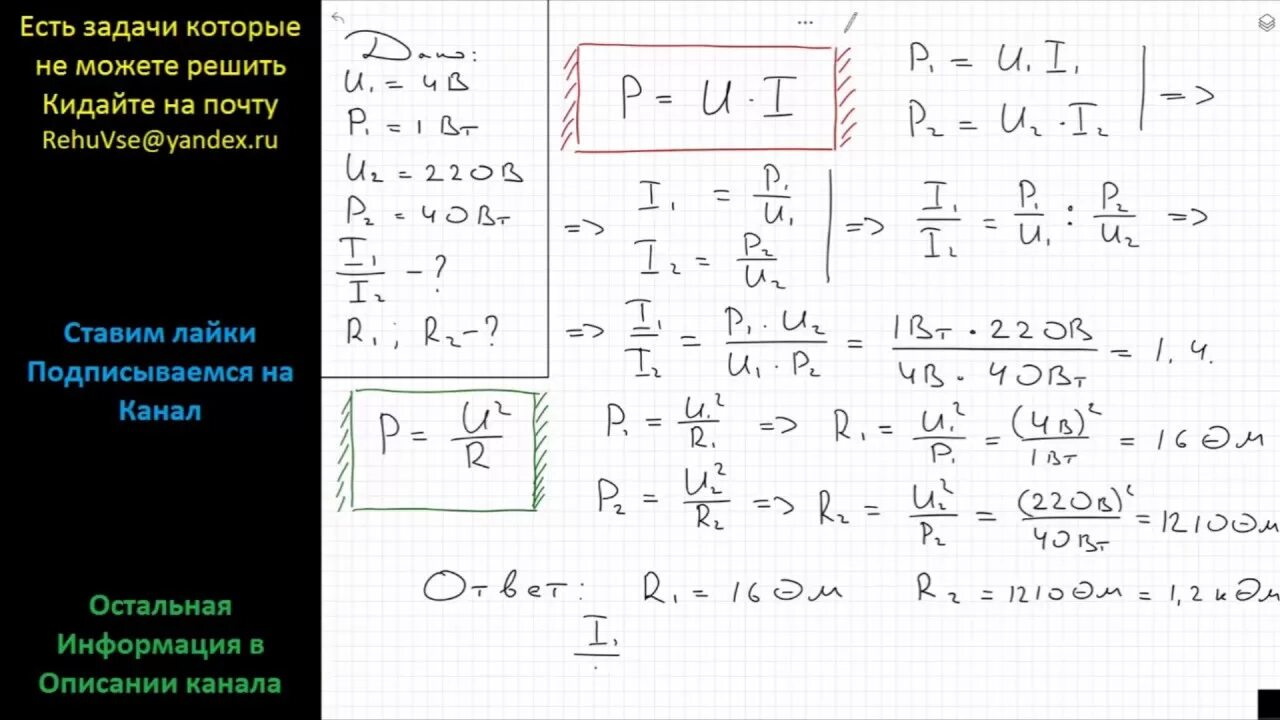 Есть задачи которые
не можете решить
Кидайте на почту
RehuVse@yandex.ru
Ставим лайки
Подписываемся на
Канал
Остальная
Информация в
Описании канала
Дано:
U₁ = 4В
P₁ = 1 Вт
U₂ = 220В
P₂ = 40Вт
I₁/I₂ - ?
R₁ ; R₂ - ?
P = U · I
P₁ = U₁ I₁
P₂ = U₂ · I₂ | =>
=> I₁ = P₁/U₁
I₂ = P₂/U₂ | => I₁/I₂ = P₁/U₁ : P₂/U₂ =>
=> I₁/I₂ = P₁ · U₂ / U₁ · P₂ = 1Вт · 220В / 4В · 40Вт = 1,4.
P = U²/R
P₁ = U₁²/R₁ => R₁ = U₁²/P₁ = (4В)²/1Вт = 16 Ом
P₂ = U₂²/R₂ => R₂ = U₂²/P₂ = (220В)²/40Вт = 1210Ом
Ответ: R₁ = 16 Ом R₂ = 1210Ом = 1,2 кОм
I₁